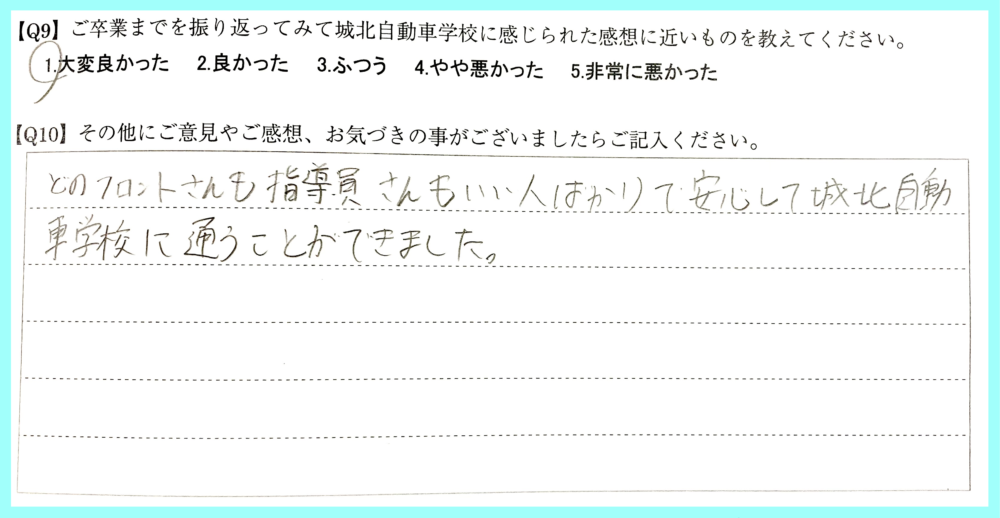 【Q9】ご卒業までを振り返ってみて城北自動車学校に感じられた感想に近いものを教えてください。
1.大変良かった 2.良かった 3.ふつう 4.やや悪かった 5.非常に悪かった
【Q10】その他にご意見やご感想、お気づきの事がございましたらご記入ください。
どのフロントさんも指導員さんもいい人ばかりで安心して城北自動
車学校に通うことができました。